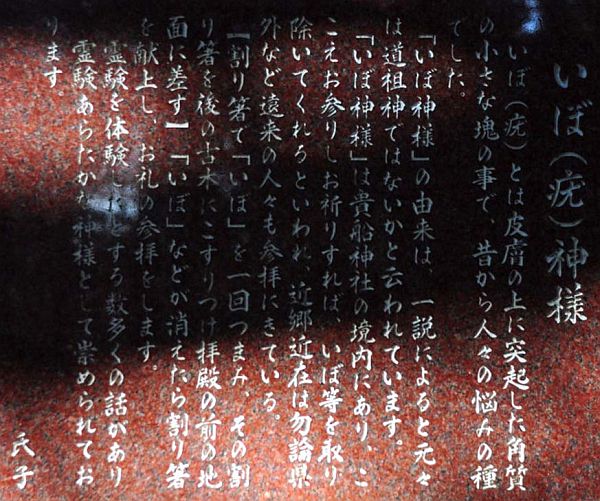 いぼ(疣)神様
いぼ(疣)とは皮膚の上に突起した角質
の小さな塊の事で、昔から人々の悩みの種
でした。
「いぼ神様」の由来は、一説によると元々
は道祖神ではないかと云われています。
「いぼ神様」は貴船神社の境内にあり、こ
こえお参りしお祈りすれば、いぼ等を取り
除いてくれるといわれ、近郷近在は勿論県
外など遠来の人々も参拝にきている。
【割り箸で『いぼ』を一回つまみ、その割
り箸を後の古木にこすりつけ拝殿の前の地
面に差す】『いぼ』などが消えたら割り箸
を献上し、お礼の参拝をします。
霊験を体験したとする数多くの話があり
霊験あらたかな神様として崇められてお
ります。
氏子